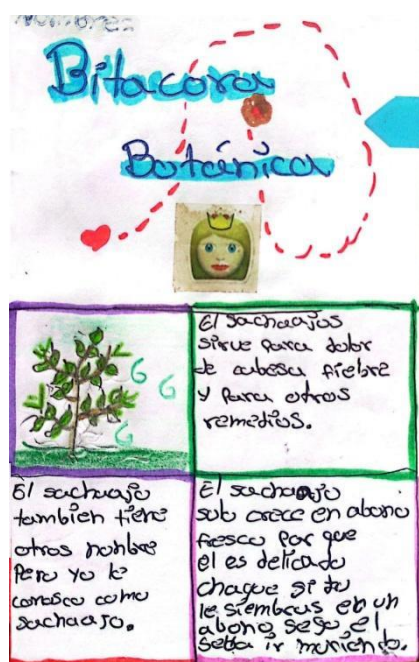 Nombres
Bitacora
Botánica
El sachaajos
sirve para dolor
de cabesa fiebre
y para otros
remedios.
El sachaajo
tambien tiene
otros nombre
Pero yo le
conosco como
sachaajo.
El sachaajo
solo crece en abono
fresco por que
el es delicado
chaque si tu
le siembras en un
abono seco el
seba ir muriendo.